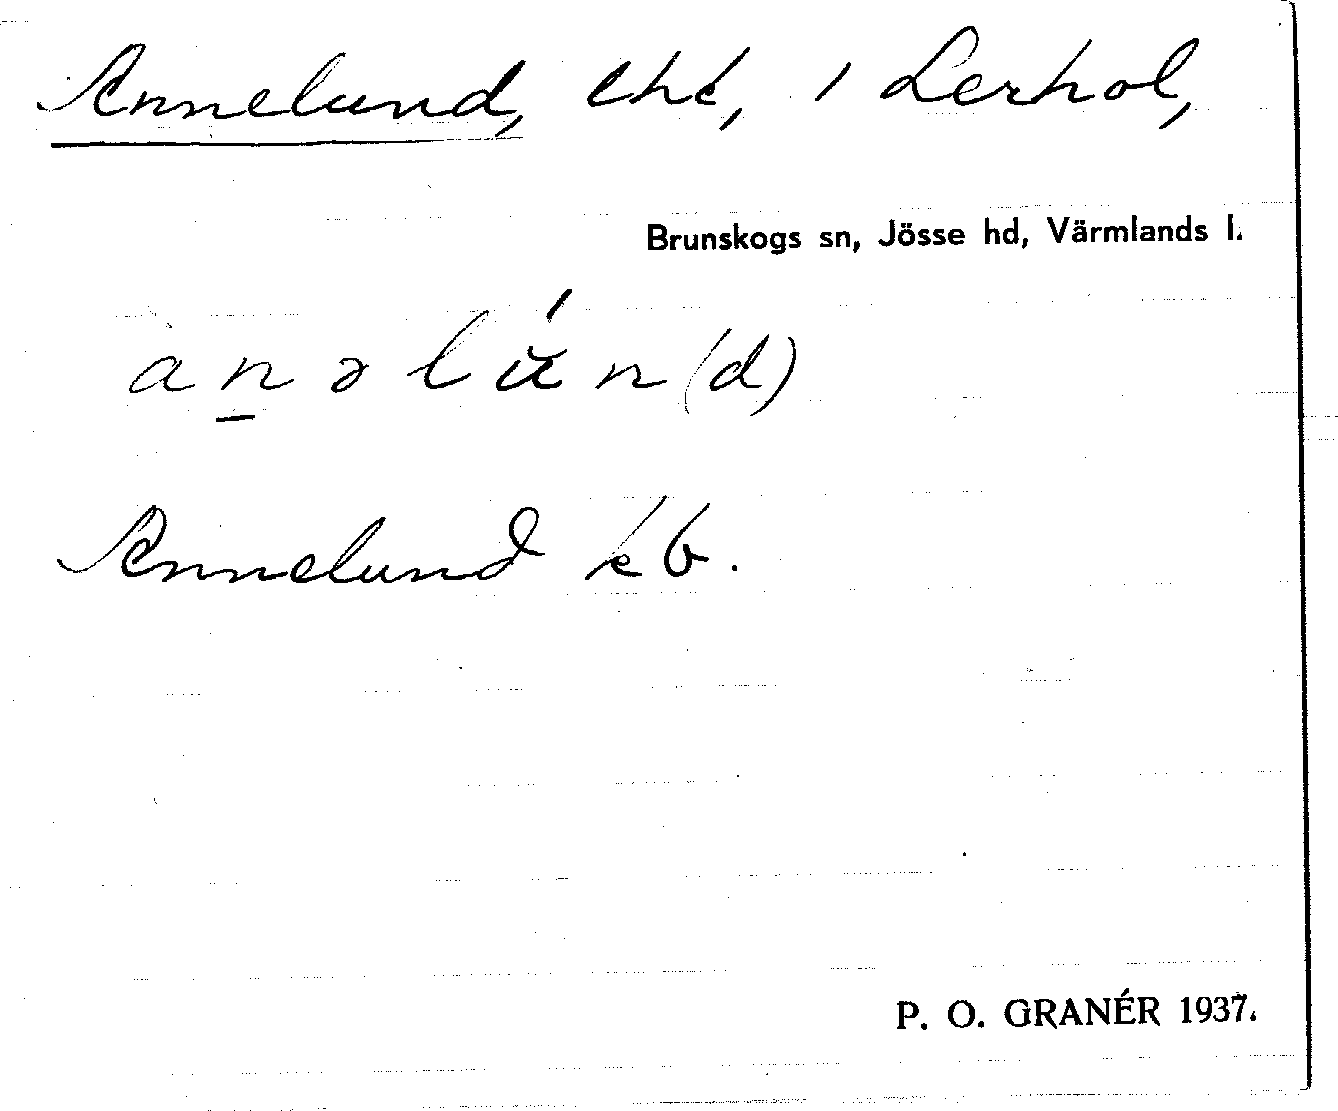 Annelund, lht, i Lerhol,
Brunskogs sn, Jösse hd, Värmlands l.
àn̲əlú̆n(d)
Annelund kb.
P. O. GRANÉR 1937.